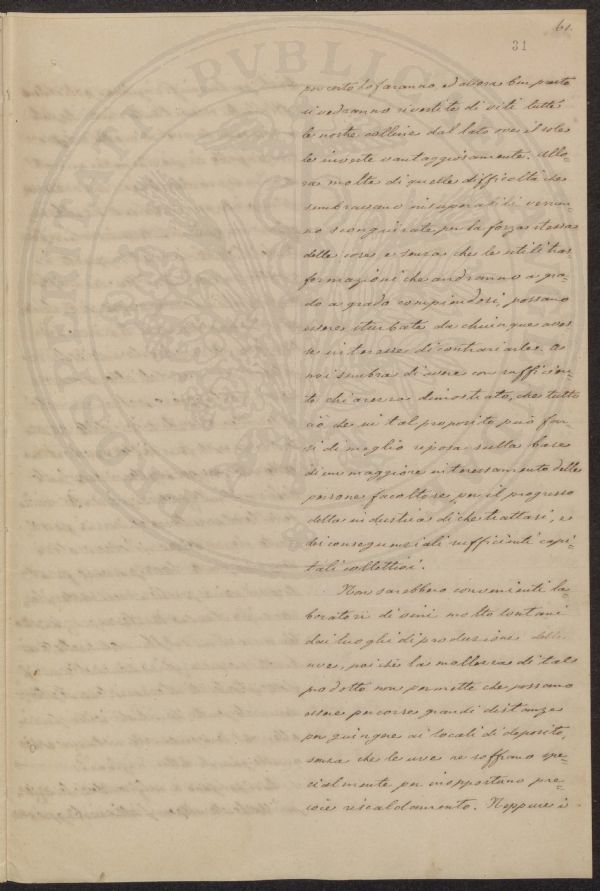 61.
31
per certo lo faranno, ed allora ben presto
si vedranno rivestite di viti tutte
le nostre colline dal lato ove il sole
le investe vantaggiosamente. Allo-
ra molte di quelle difficoltà che
sembravano insuperabili verran-
no sconquirate, per la forza stessa
delle cose e senza che le utili tras
formazioni che andranno a gra-
do a grado compiendosi, possano
essere sturbate da chiunque aves
se interesse di contrariarle. A
noi sembra di avere con sufficien-
te chiarezza dimostrato, che tutto
ciò che in tal proposito può far-
si di meglio riposa sulla base
di un maggiore interessamento delle
persone facoltose, per il progresso
della industria di che trattasi, e
dei consequenziali sufficienti capi-
tali collettivi.
Non sarebbero convenienti la-
boratori di vini molto lontani
dai luoghi di produzione delle
uve, poichè la mollezza di tal
prodotto non permette che possano
essere percorse grandi distanze
per giungere ai locali di deposito,
senza che le uve ne soffrano spe-
cialmente per inopportuno pre-
coce riscaldamento. Neppure è
PVBLIC